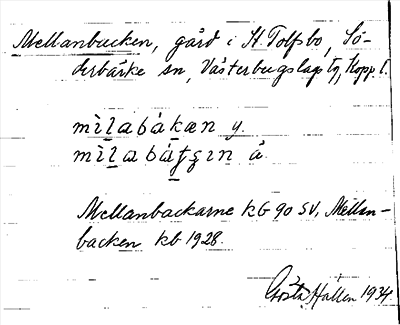 Mellanbacken, gård i St. Tolfsbo, Sö-
derbärke sn, Västerbergslags tg, Kopp. l.
mìlabákæn y.
mìlabáʈʂɪn ä.
Mellanbackarne kb 90 SV, Mellan-
backen kb 1928.
Gösta Hallén 1934.